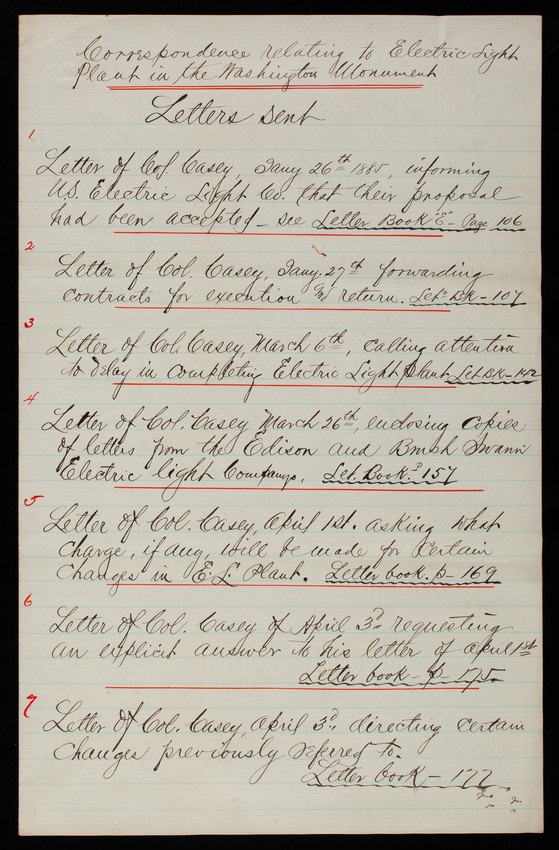 Correspondence relating to Electric Light
Plant in the Washington Monument
Letters sent
1
Letter of Col. Casey, Jany 26th 1885, informing
U.S. Electric Light Co. that their proposal
had been accepted - see Letter Book "E" - Page 106
2
Letter of Col. Casey, Jany. 27th forwarding
contracts for execution and return. Let. Bk - 107
3
Letter of Col. Casey, March 6th, calling attention
to delay in completing Electric Light Plant Let. Bk - 142
4
Letter of Col. Casey March 26th, enclosing copies
of letters from the Edison and Brush Swann
Electric light Companys, Let. Book. P 157
5
Letter of Col. Casey, April 1st. asking what
charge, if any, will be made for certain
changes in E. L. Plant. Letter book. p - 169
6
Letter of Col. Casey of April 3d requesting
an explicit answer to his letter of April 1st
Letter book - p - 175
7
Letter of Col. Casey, April 3d, directing certain
changes previously referred to.
Letter book - 177